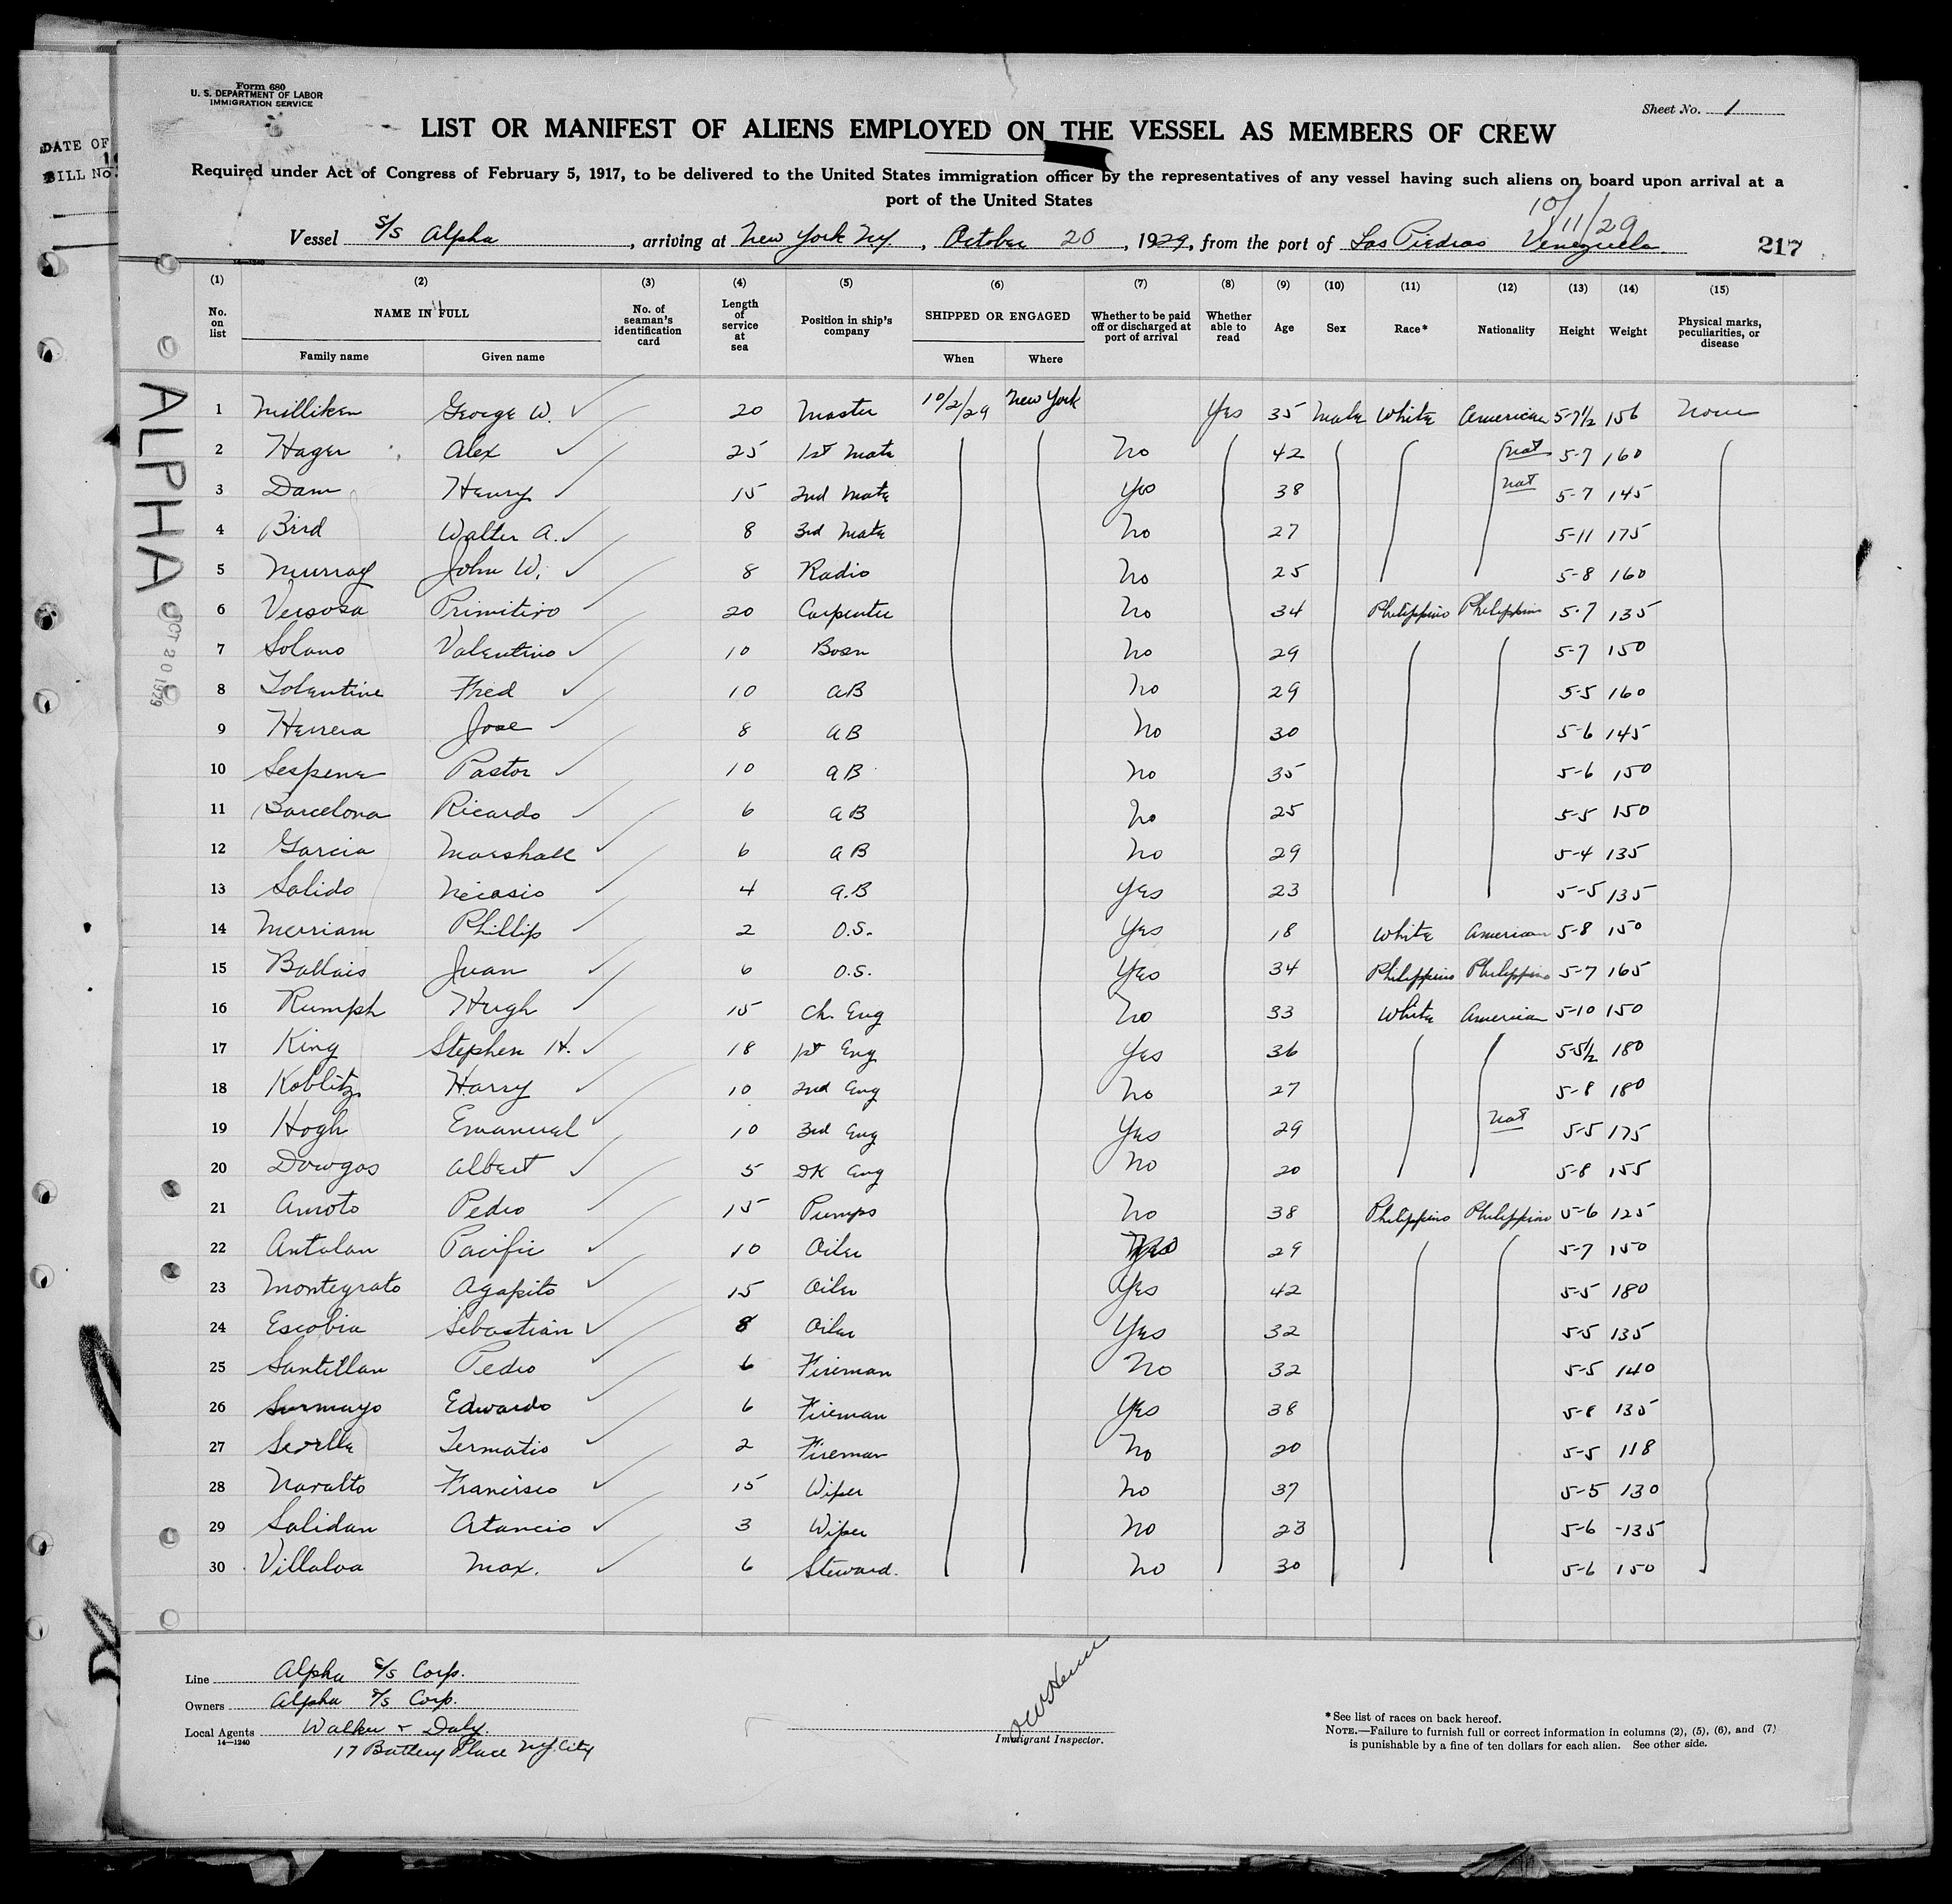 Form 680
U. S. DEPARTMENT OF LABOR
IMMIGRATION SERVICE
Sheet No. 1
LIST OR MANIFEST OF ALIENS EMPLOYED ON THE VESSEL AS MEMBERS OF CREW
Required under Act of Congress of February 5, 1917, to be delivered to the United States immigration officer by the representatives of any vessel having such aliens on board upon arrival at a
port of the United States
10/11/29
Vessel S/S Alpha, arriving at New York NY, October 20, 1929, from the port of Las Piedras Venezuela 217
DATE OF
BILL No.
ALPHA
OCT 20 1929
(1) (2) (3) (4) (5) (6) (7) (8) (9) (10) (11) (12) (13) (14) (15)
No. on list NAME IN FULL No. of seaman's identification card Length of service at sea Position in ship's company SHIPPED OR ENGAGED Whether to be paid off or discharged at port of arrival Whether able to read Age Sex Race* Nationality Height Weight Physical marks, peculiarities, or disease
Family name Given name When Where
1 Milliken George W. 20 Master 10/2/29 New York Yes 35 Male White American 5-7½ 156 None
2 Hager Alex 25 1st Mate No 42 nat 5-7 160
3 Dam Henry 15 2nd Mate Yes 38 nat 5-7 145
4 Bird Walter A. 8 3rd Mate No 27 5-11 175
5 Murray John W. 8 Radio No 25 5-8 160
6 Versosa Primitivo 20 Carpenter No 34 Philippino Philippino 5-7 135
7 Solano Valentino 10 Bosn No 29 5-7 150
8 Tolentine Fred 10 AB No 29 5-5 160
9 Herrera Jose 8 AB No 30 5-6 145
10 Sespene Pastor 10 AB No 35 5-6 150
11 Barcelona Ricardo 6 AB No 25 5-5 150
12 Garcia Marshall 6 AB No 29 5-4 135
13 Salido Necasio 4 A.B Yes 23 5-5 135
14 Merriam Phillip 2 O.S. Yes 18 White American 5-8 150
15 Juan 6 O.S. Yes 34 Philippino Philippino 5-7 165
16 Rumph Hugh 15 Ch. Eng No 33 White American 5-10 150
17 King Stephen H. 18 1st Eng Yes 36 5-5½ 180
18 Koblitz Harry 10 2nd Eng No 27 5-8 180
19 Hogh Emanuel 10 3rd Eng Yes 29 nat 5-5 175
20 Dowgos Albert 5 DK Eng No 20 5-8 155
21 Amoto Pedro 15 Pumps No 38 Philippino Philippino 5-6 125
22 Antolan Pacific 10 Oiler 29 5-7 150
23 Montegrato Agapito 15 Oiler Yes 42 5-5 180
24 Escobia Sebastian 8 Oiler Yes 32 5-5 135
25 Santillan Pedro 6 Fireman No 32 5-5 140
26 Surmayo Edwardo 6 Fireman Yes 38 5-8 135
27 Seville Termatio 2 Fireman No 20 5-5 118
28 Navalto Francisco 15 Wiper No 37 5-5 130
29 Salidan Atancio 3 Wiper No 23 5-6 135
30 Villaloa Max. 6 Steward. No 30 5-6 150
Line Alpha S/S Corp.
Owners Alpha S/S Corp.
Local Agents Walker & Daly.
14—1240
17 Battery Place N.Y. City
Immigrant Inspector.
*See list of races on back hereof.
NOTE.—Failure to furnish full or correct information in columns (2), (5), (6), and (7)
is punishable by a fine of ten dollars for each alien. See other side.